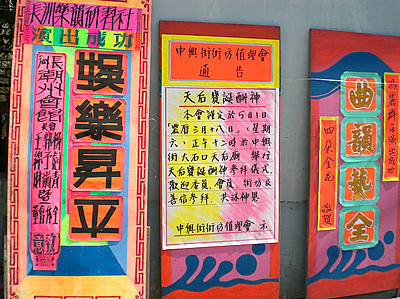 長洲樂韻研習社
演出成功
娛樂昇平
長潮州會館
中興街街坊值理會
通告
天后寶誕酬神
本會謹定於5月1日
農曆三月十八日,星期
六,正午十二時於中興
街大石口天后廟,舉行
天后寶誕酬神參拜儀式,
歡迎委員,會員,街坊及
善信參拜,共沐神恩
中興街街坊值理會 示
曲韻藝全
四朵金花
敬賀